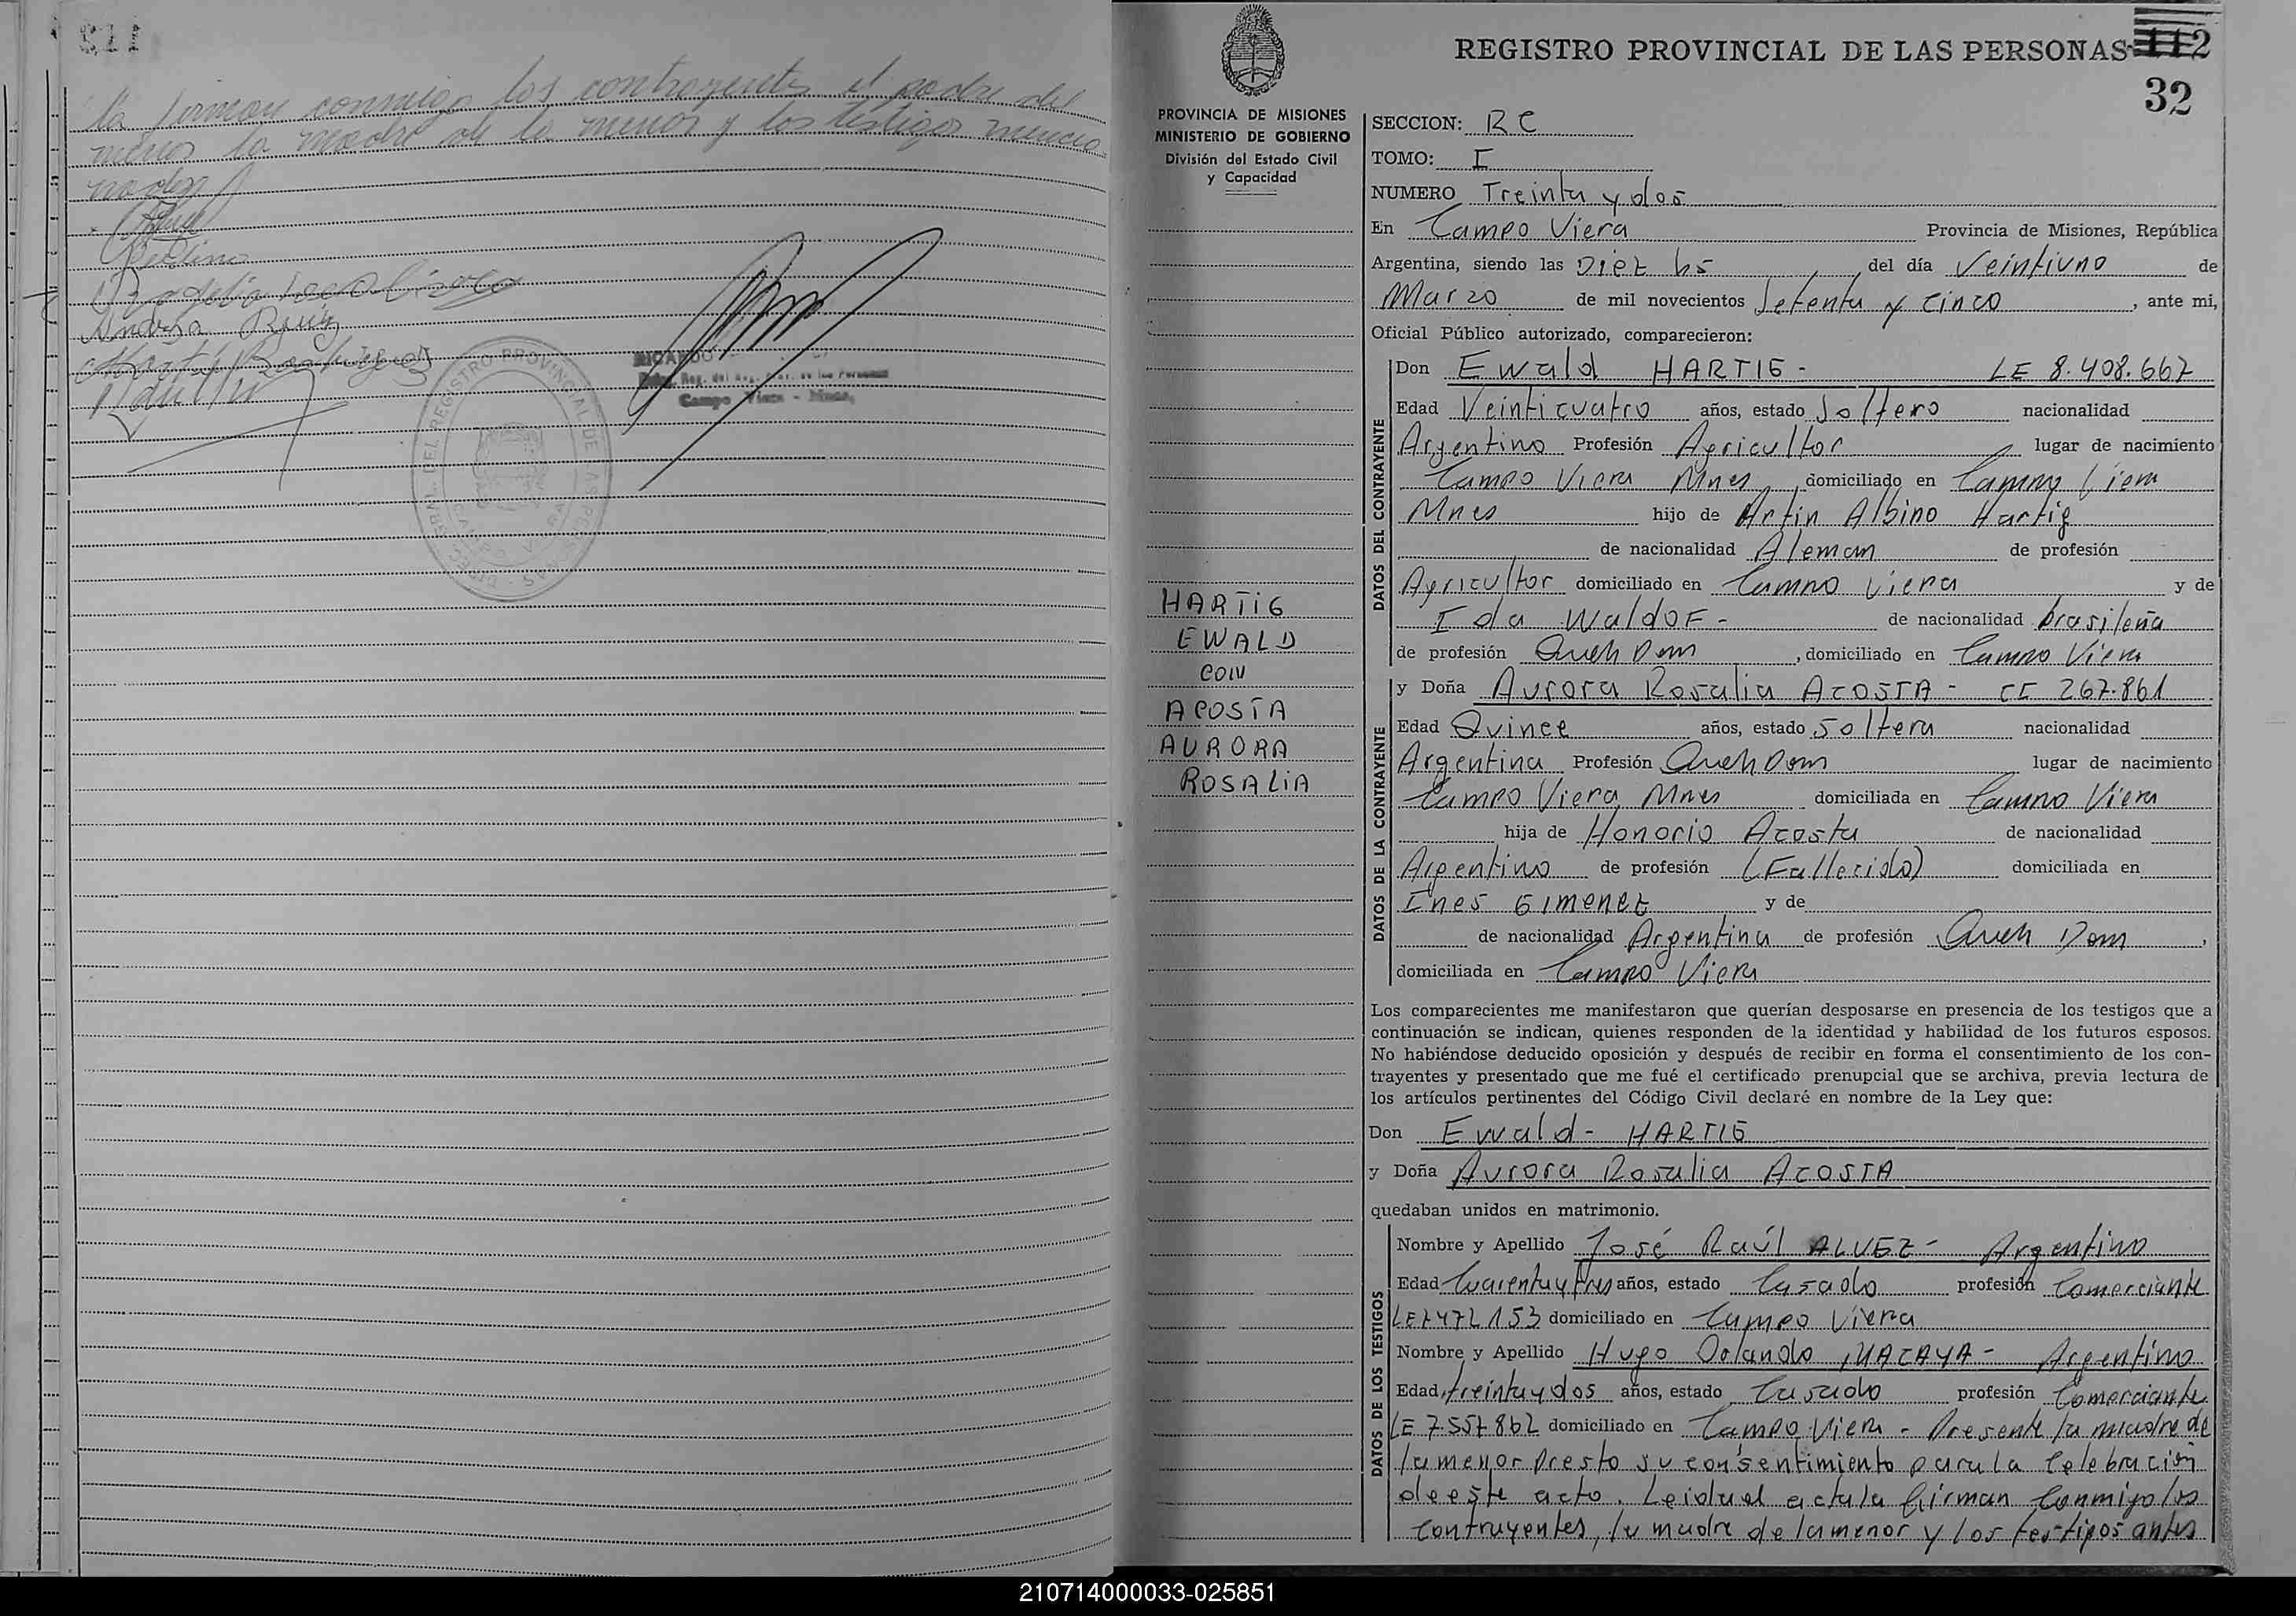 la firman conmigo los contrayentes el padre del
menor la madre de la menor y los testigos mencio
nados
Andresa Ruiz
DEL REGISTRO PROVINCIAL DE
Campo Viera - Mnes.
REGISTRO PROVINCIAL DE LAS PERSONAS 112
32
PROVINCIA DE MISIONES
MINISTERIO DE GOBIERNO
División del Estado Civil
y Capacidad
HARTIG
EWALD
CON
ACOSTA
AURORA
ROSALIA
SECCION: RC
TOMO: I
NUMERO Treinta y dos
En Campo Viera Provincia de Misiones, República
Argentina, siendo las Diez hs, del día Veintiuno de
Marzo de mil novecientos Setenta y Cinco, ante mi,
Oficial Público autorizado, comparecieron:
DATOS DEL CONTRAYENTE
Don Ewald HARTIG - LE 8.408.667
Edad Veinticuatro años, estado Soltero nacionalidad
Argentino Profesión Agricultor lugar de nacimiento
Campo Viera Mnes, domiciliado en Campo Viera
Mnes hijo de Artin Albino Hartig
de nacionalidad Aleman de profesión
Agricultor domiciliado en Campo Viera y de
Ida Waldof - de nacionalidad brasileña
de profesión Queh Dom, domiciliado en Campo Viera
DATOS DE LA CONTRAYENTE
y Doña Aurora Rosalia ACOSTA - CI 267.861
Edad Quince años, estado Soltera nacionalidad
Argentina Profesión Queh Dom lugar de nacimiento
Campo Viera Mnes domiciliada en Campo Viera
hija de Honorio Acosta de nacionalidad
Argentino de profesión (Fallecido) domiciliada en
Ines Gimenez y de
de nacionalidad Argentina de profesión Queh Dom,
domiciliada en Campo Viera
Los comparecientes me manifestaron que querían desposarse en presencia de los testigos que a
continuación se indican, quienes responden de la identidad y habilidad de los futuros esposos.
No habiéndose deducido oposición y después de recibir en forma el consentimiento de los con-
trayentes y presentado que me fué el certificado prenupcial que se archiva, previa lectura de
los artículos pertinentes del Código Civil declaré en nombre de la Ley que:
Don Ewald - HARTIG
y Doña Aurora Rosalia ACOSTA
quedaban unidos en matrimonio.
DATOS DE LOS TESTIGOS
Nombre y Apellido José Raúl ALVEZ - Argentino
Edad Cuarenta y tres años, estado Casado profesión Comerciante
LE 7472153 domiciliado en Campo Viera
Nombre y Apellido Hugo Orlando MACAYA - Argentino
Edad treinta y dos años, estado Casado profesión Comerciante
LE 7.557.862 domiciliado en Campo Viera - Presente la madre de
la menor presto su consentimiento para la celebración
de este acto. Leida el acta la firman conmigo los
contrayentes, la madre de la menor y los testigos antes
210714000033-025851